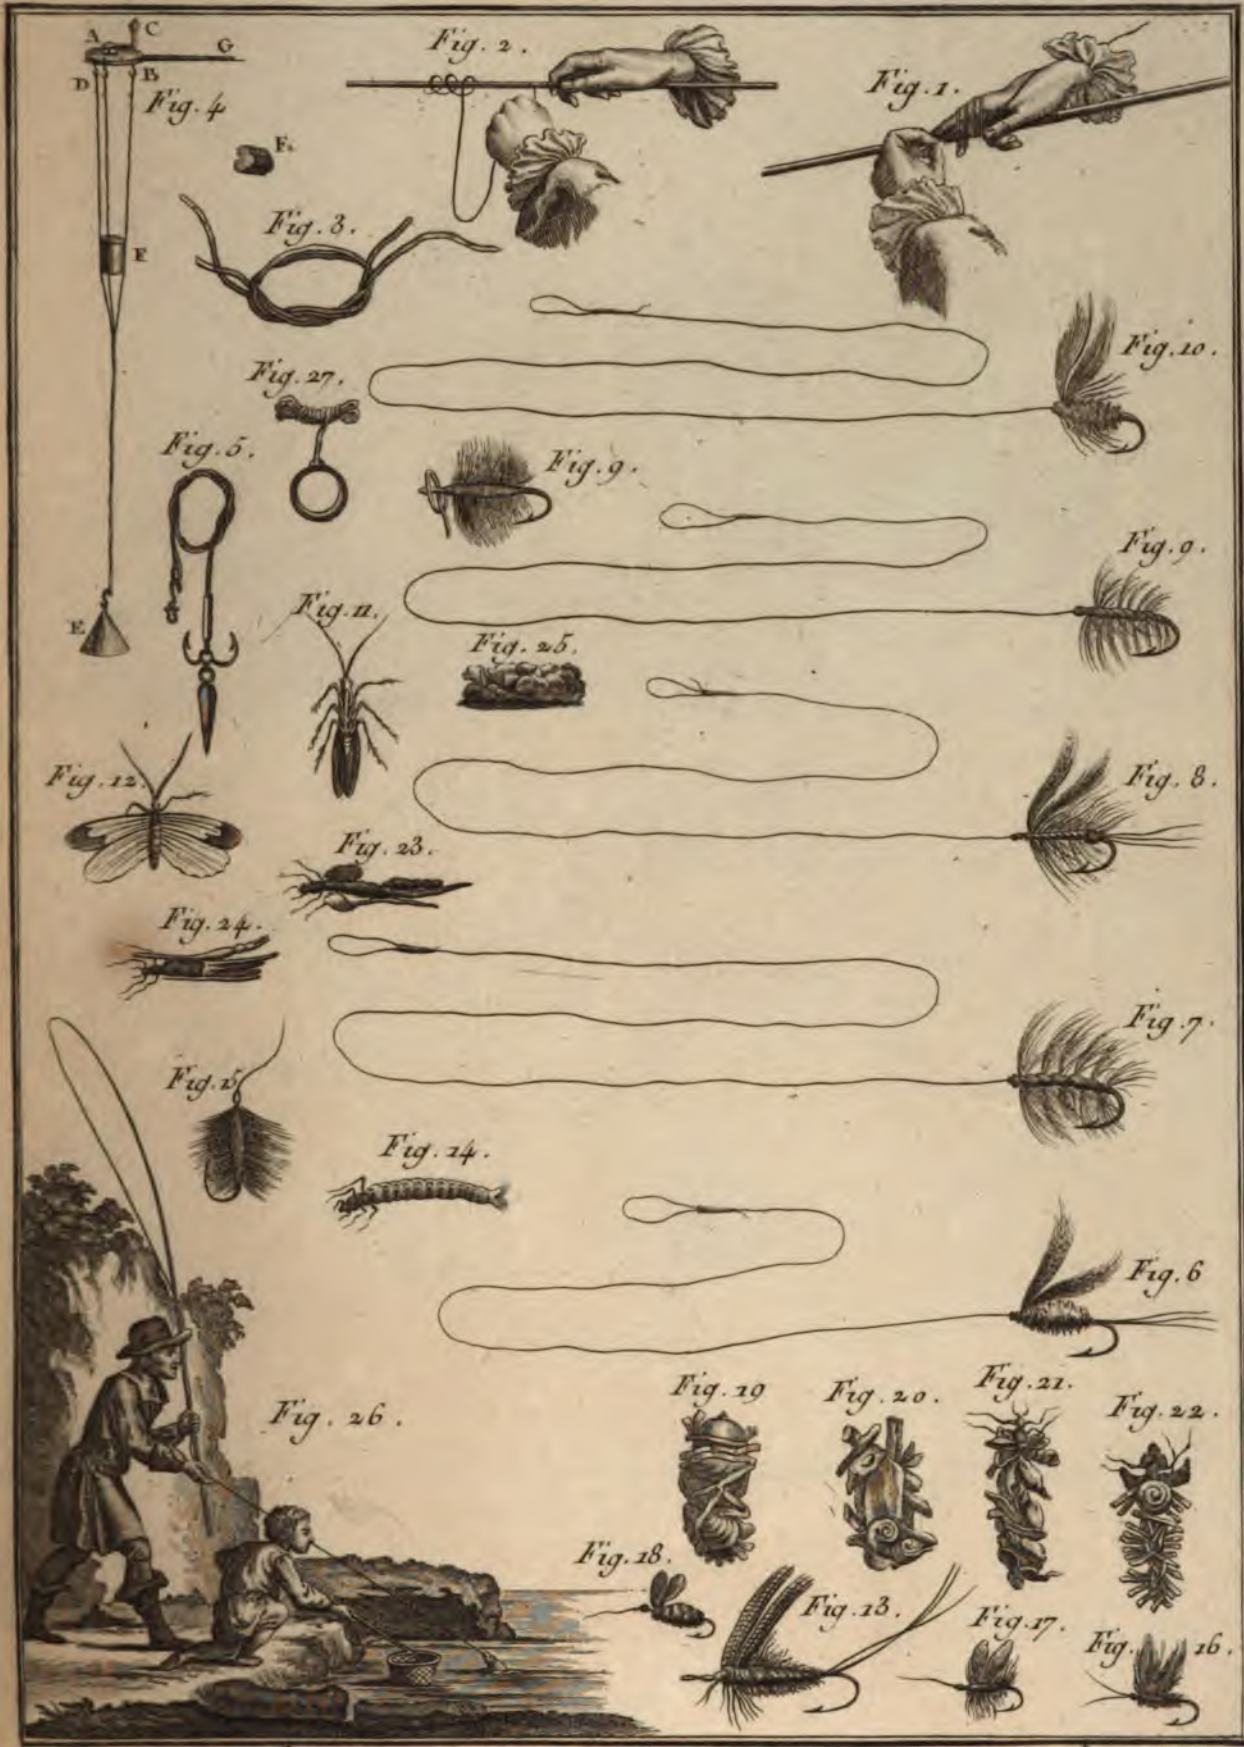 C
A
G
D
B
Fig. 4
Fig. 2.
Fig. 1.
F.
Fig. 3.
E
Fig. 10.
Fig. 27.
Fig. 5.
Fig. 9.
Fig. 9.
E
Fig. 11.
Fig. 25.
Fig. 12.
Fig. 8.
Fig. 23.
Fig. 24.
Fig. 7.
Fig. 15
Fig. 14.
Fig. 6
Fig. 26.
Fig. 19
Fig. 20.
Fig. 21.
Fig. 22.
Fig. 18.
Fig. 13.
Fig. 17.
Fig. 16.